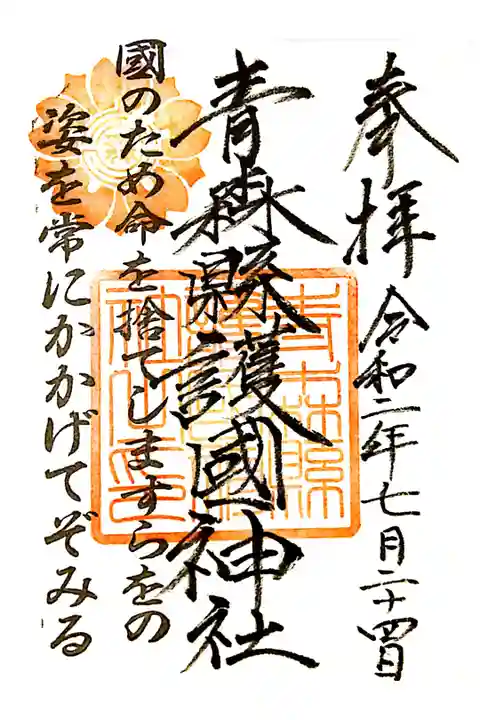 奉拝 令和二年七月二十四日
青森縣護國神社
國のため命を捨てしますらをの
姿を常にかかげてぞみる